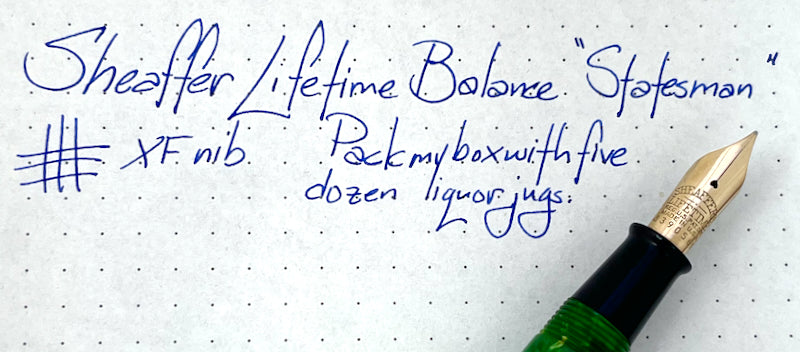 Sheaffer Lifetime Balance "Statesman"
XF nib. Pack my box with five
dozen liquor jugs.
SHEAFFER'S
LIFETIME